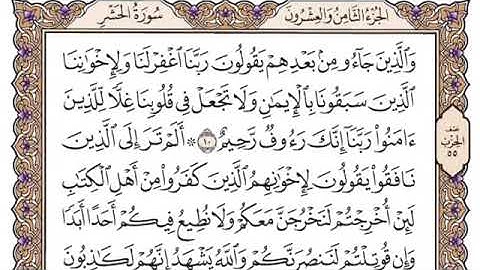 الجزء الثامن والعشرون سورة الحشر
وَالَّذِينَ جَاءُو مِنۢ بَعْدِهِمْ يَقُولُونَ رَبَّنَا اغْفِرْ لَنَا وَلِإِخْوَانِنَا
الَّذِينَ سَبَقُونَا بِالْإِيمَانِ وَلَا تَجْعَلْ فِي قُلُوبِنَا غِلًّا لِّلَّذِينَ
ءَامَنُوا رَبَّنَا إِنَّكَ رَءُوفٌ رَّحِيمٌ ١٠ ۞ أَلَمْ تَرَ إِلَى الَّذِينَ
نَافَقُوا يَقُولُونَ لِإِخْوَانِهِمُ الَّذِينَ كَفَرُوا مِنْ أَهْلِ الْكِتَابِ
لَئِنْ أُخْرِجْتُمْ لَنَخْرُجَنَّ مَعَكُمْ وَلَا نُطِيعُ فِيكُمْ أَحَدًا أَبَدًا
وَإِن قُوتِلْتُمْ لَنَنصُرَنَّكُمْ وَاللَّهُ يَشْهَدُ إِنَّهُمْ لَكَاذِبُونَ
نصف
الحزب
٥٥